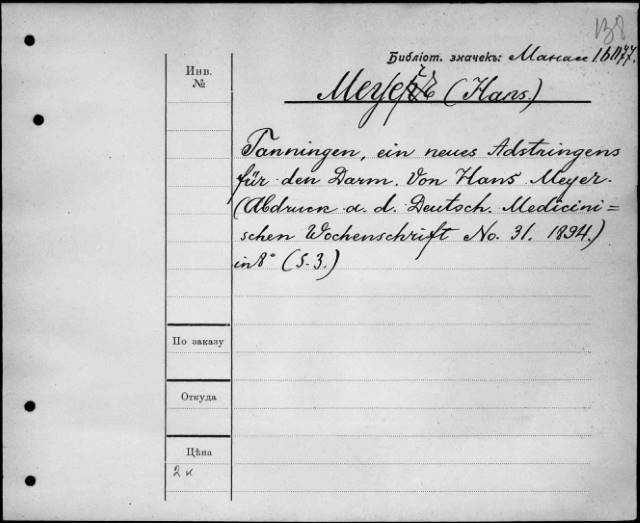 138
Библiот. значекъ: Манасе 16077.
Инв.
№
Meyer (Hans.)
Tanningen, ein neues Adstringens
für den Darm. Von Hans Meyer.
(Abdruck a. d. Deutsch. Medicini=
schen Wochenschrift No. 31. 1894.)
in 8° (S. 3.)
По заказу
Откуда
Цѣна
2 к